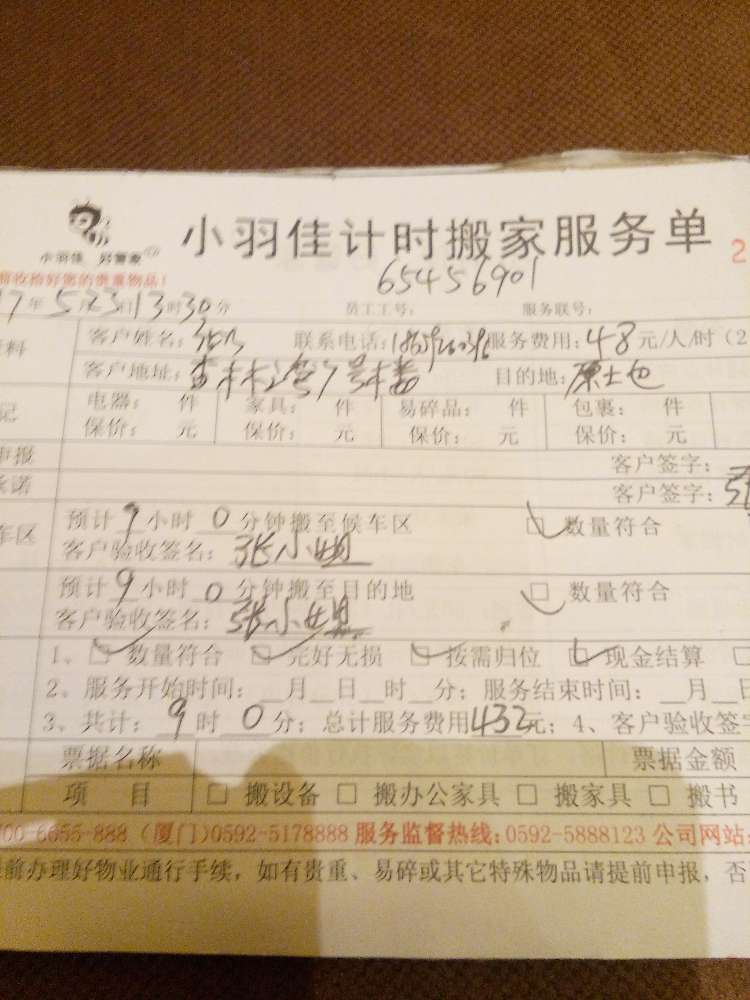 小羽佳计时搬家服务单
小羽佳 好管家
2
将收拾好您的贵重物品!
65456901
7年5月23日13时30分 员工工号: 服务联号:
资料 客户姓名: 联系电话: 服务费用:48元/人/时(2
客户地址: 7号楼 目的地:原土也
记 电器: 件 家具: 件 易碎品: 件 包裹: 件
保价: 元 保价: 元 保价: 元 保价: 元
申报 客户签字:
承诺 客户签字:张
车区 预计9小时0分钟搬至候车区 □数量符合
客户验收签名:张小姐
预计9小时0分钟搬至目的地 □数量符合
客户验收签名:张小姐
1、□数量符合 □完好无损 □按需归位 □现金结算 □
2、服务开始时间:__月__日__时__分;服务结束时间:__月__日
3、共计:9时0分;总计服务费用432元;4、客户验收签字
票据名称 票据金额
项 目 □搬设备 □搬办公家具 □搬家具 □搬书
00-6655-888(厦门)0592-5178888服务监督热线:0592-5888123公司网站:
前办理好物业通行手续,如有贵重、易碎或其它特殊物品请提前申报,否